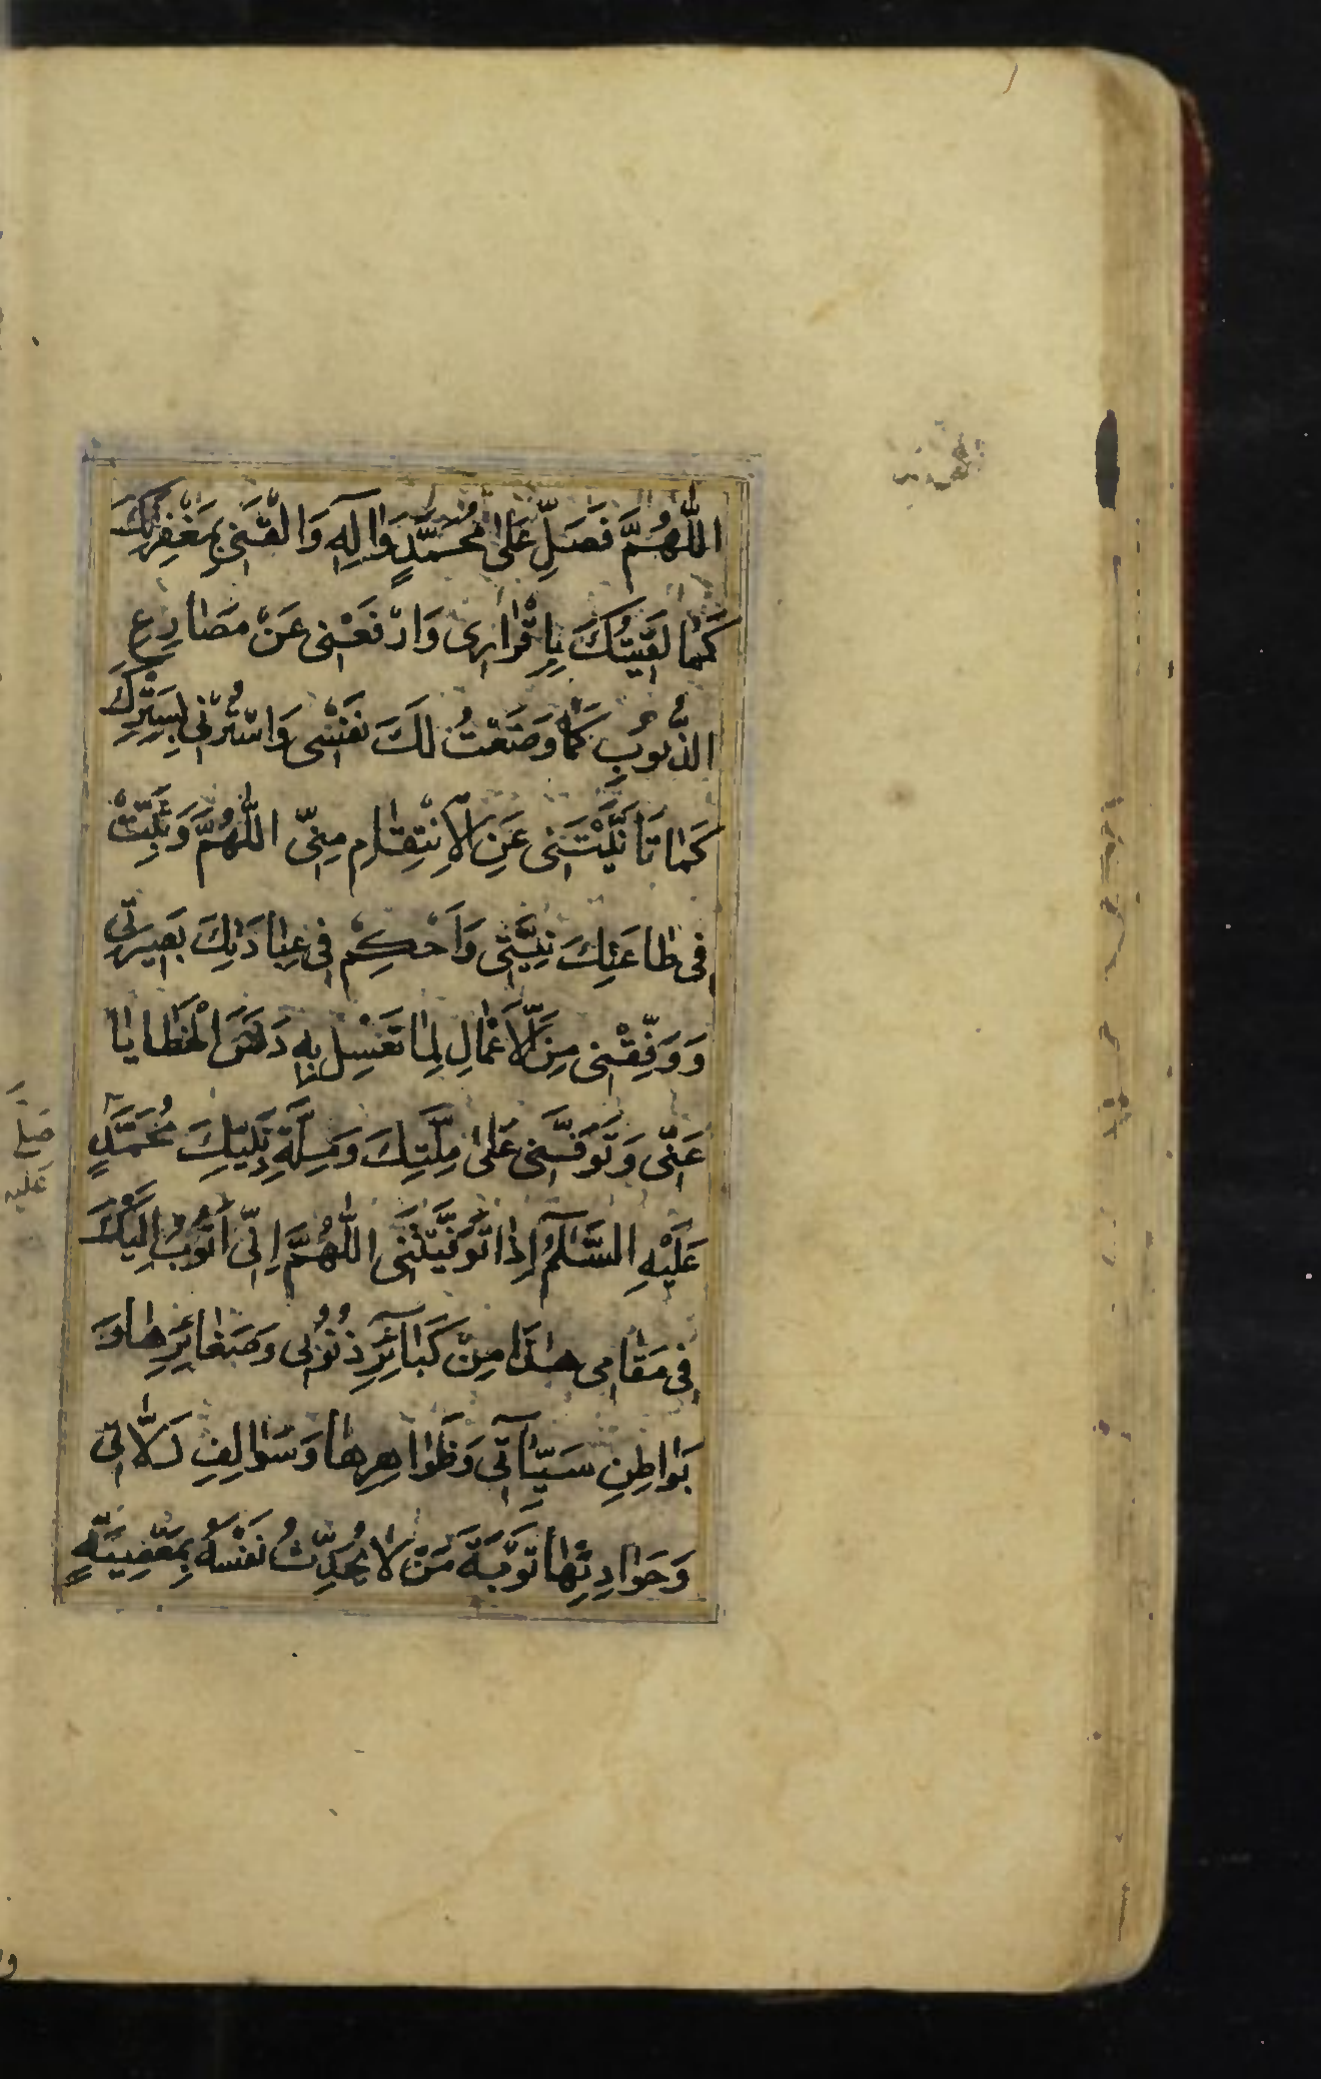 اللّٰهُمَّ فَصَلِّ عَلىٰ مُحَمَّدٍ وَاٰلِهِ وَالْقَنِي بِمَغْفِرَتِكَ
كَمٰا لَقَيْتُكَ بِاِقْرٰارِى وَارْفَعْنِى عَنْ مَصٰارِعِ
الذُّنُوبِ كَمٰا وَضَعْتُ لَكَ نَفْسِى وَاسْتُرْنِى بِسِتْرِكَ
كَمٰا تَاَنَّيْتَنِى عَنِ الْاِنْتِقٰامِ مِنِّى اللّٰهُمَّ وَثَبِّتْ
فِى طٰاعَتِكَ نِيَّتِى وَاَحْكِمْ فِى عِبٰادَتِكَ بَصِيرَتِى
وَوَفِّقْنِى مِنَ الْاَعْمٰالِ لِمٰا تَغْسِلُ بِهِ دَنَسَ الْخَطٰايٰا
عَنِّى وَتَوَفَّنِى عَلىٰ مِلَّتِكَ وَمِلَّةِ نَبِيِّكَ مُحَمَّدٍ
عَلَيْهِ السَّلٰامُ اِذٰا تَوَفَّيْتَنِى اللّٰهُمَّ اِنِّى اَتُوبُ اِلَيْكَ
فِى مَقٰامِى هٰذٰا مِنْ كَبٰآئِرِ ذُنُوبِى وَصَغٰائِرِهٰا وَ
بَوٰاطِنِ سَيِّئٰاٰتِى وَظَوٰاهِرِهٰا وَسَوٰالِفِ زَلّٰاتِى
وَحَوٰادِثِهٰا تَوْبَةَ مَنْ لٰا يُحَدِّثُ نَفْسَهُ بِمَعْصِيَةٍ
صلى
عليه